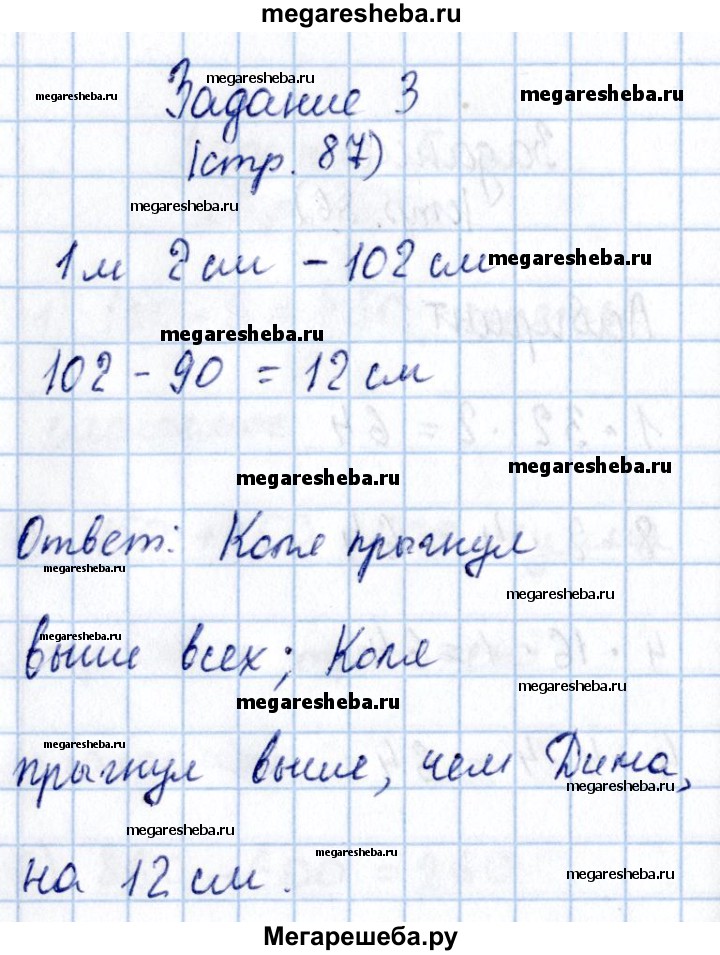 megaresheba.ru
megaresheba.ru
megaresheba.ru
megaresheba.ru
Задание 3
(стр. 87)
megaresheba.ru
1 м 2 см – 102 см
megaresheba.ru
megaresheba.ru
102 - 90 = 12 см
megaresheba.ru
megaresheba.ru
Ответ: Коля прыгнул
megaresheba.ru
megaresheba.ru
megaresheba.ru
выше всех; Коля
megaresheba.ru
megaresheba.ru
megaresheba.ru
прыгнул выше, чем Дима,
megaresheba.ru
megaresheba.ru
megaresheba.ru
megaresheba.ru
на 12 см.
Мегарешеба.ру